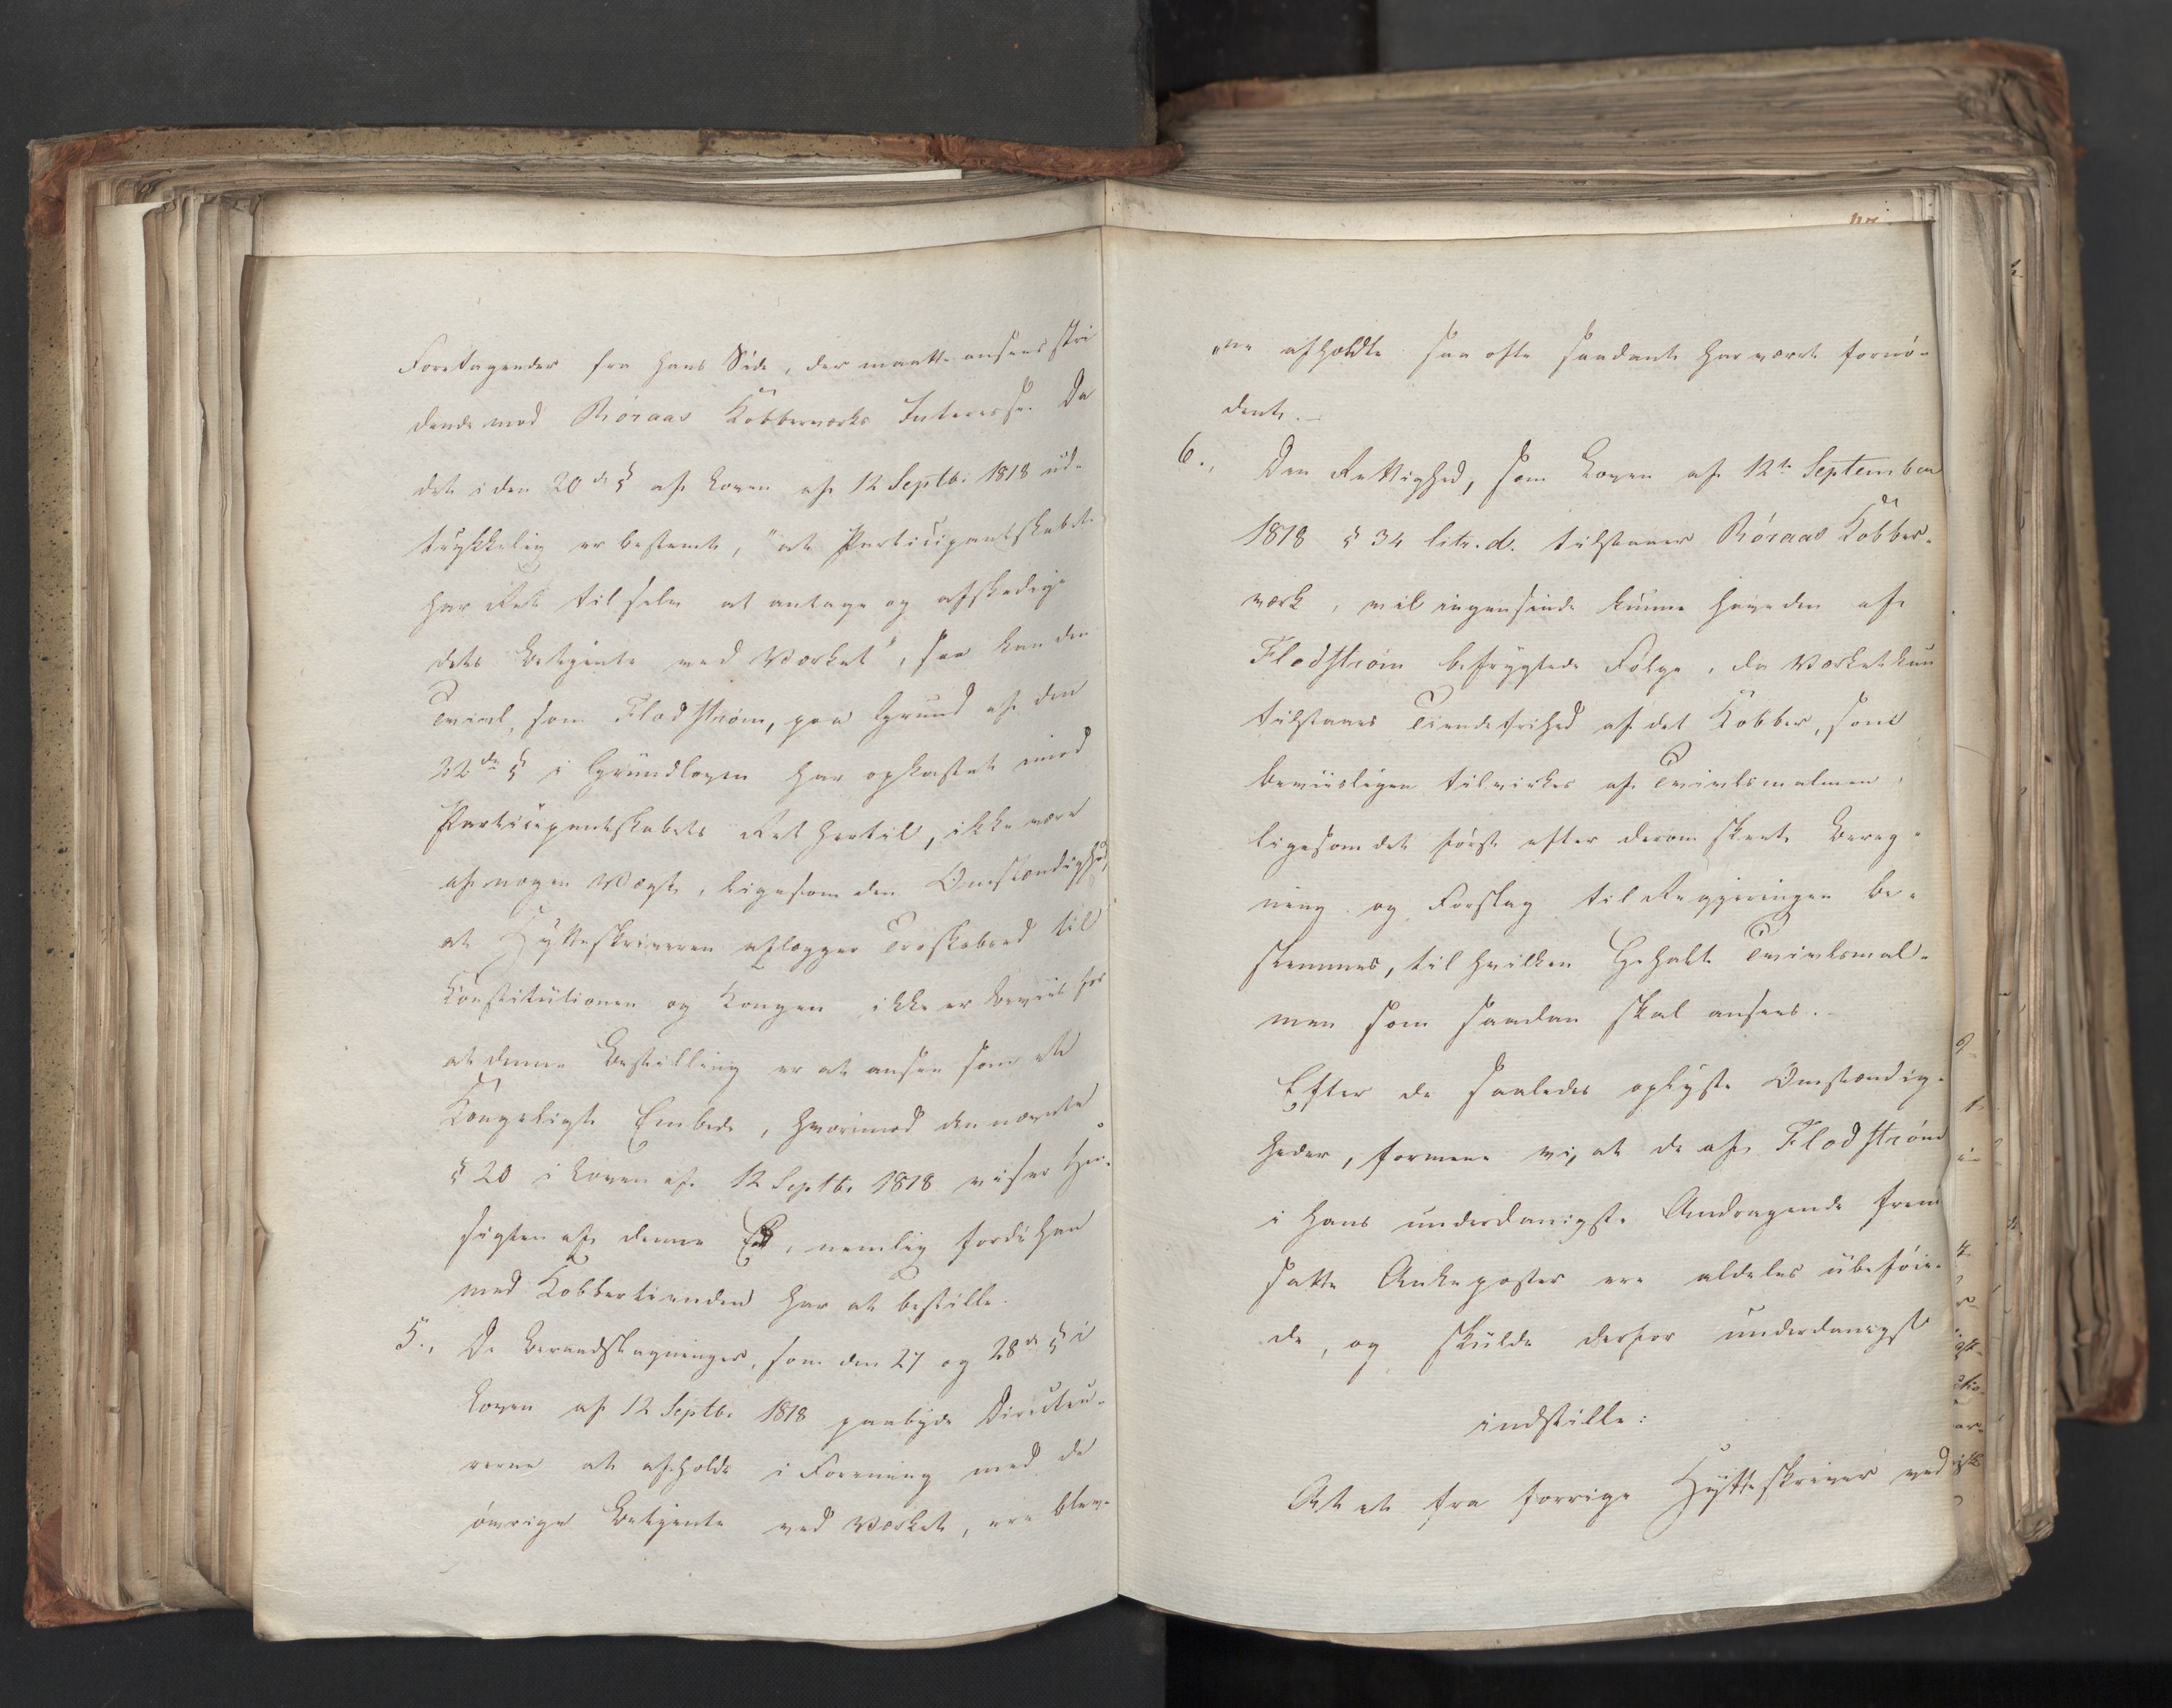 Foretagender fra hans Side, der maatte ansees stri
dende mod Röraas Kobberværks Interesse. Da
det i den 20de § af Loven af 12 Septbr 1818 ud-
trykkelig er bestemt, "at Participantskabet
har Ret til selv at antage og afskedige
dets Betjente ved Værket", saa kan den
Tvivl, som Flodström, paa Grund af den
22de § i Grundloven har opkastet imod
Participantskabets Ret hertil, ikke være
af nogen Vægt, ligesom den Omstændighed,
at Hytteskriveren aflægger Troskabseed til
Konstitutionen og Kongen ikke er Beviis for
at denne Bestilling er at ansee som et
Kongeligt Embede, hvorimod den nævnte
§ 20 i Loven af 12 Septbr 1818 viser Hen-
sigten af denne Eed, nemlig fordi han
med Kobbertienden har at bestille.
5., De Beraadslagninger, som den 27 og 28de § i
Loven af 12 Septbr 1818 paabyde Directeu-
rerne at afholde i Forening med de
övrige Betjente ved Værket, ere bleve-
"ne afholdte saa ofte saadant har været fornö-
dent.-
6., Den Rettighed, som Loven af 12te September
1818 § 34 litr. d. tilstaaer Röraas Kobber-
værk, vil ingensinde kunne have den af
Flodström befrygtede Fölge, da Værket kun
tilstaaes Tiendefrihed af det Kobber, som
beviisligen tilvirkes af Tvivlsmalmen,
ligesom det förft efter derom skeet Bereg-
ning og Forslag til Regjeringen be-
stemmes, til hvilken Gehalt Tvivlsmal-
men som saadan skal ansees.-
Efter de saaledes oplyste Omstændig-
heder, formene vi, at de af Flodström
i hans underdanigste Andragende frem
satte Ankeposter ere aldeles ubeföie-
de, og skulde derfor underdanigst
indstille:
At et fra forrige Hytteskriver ved